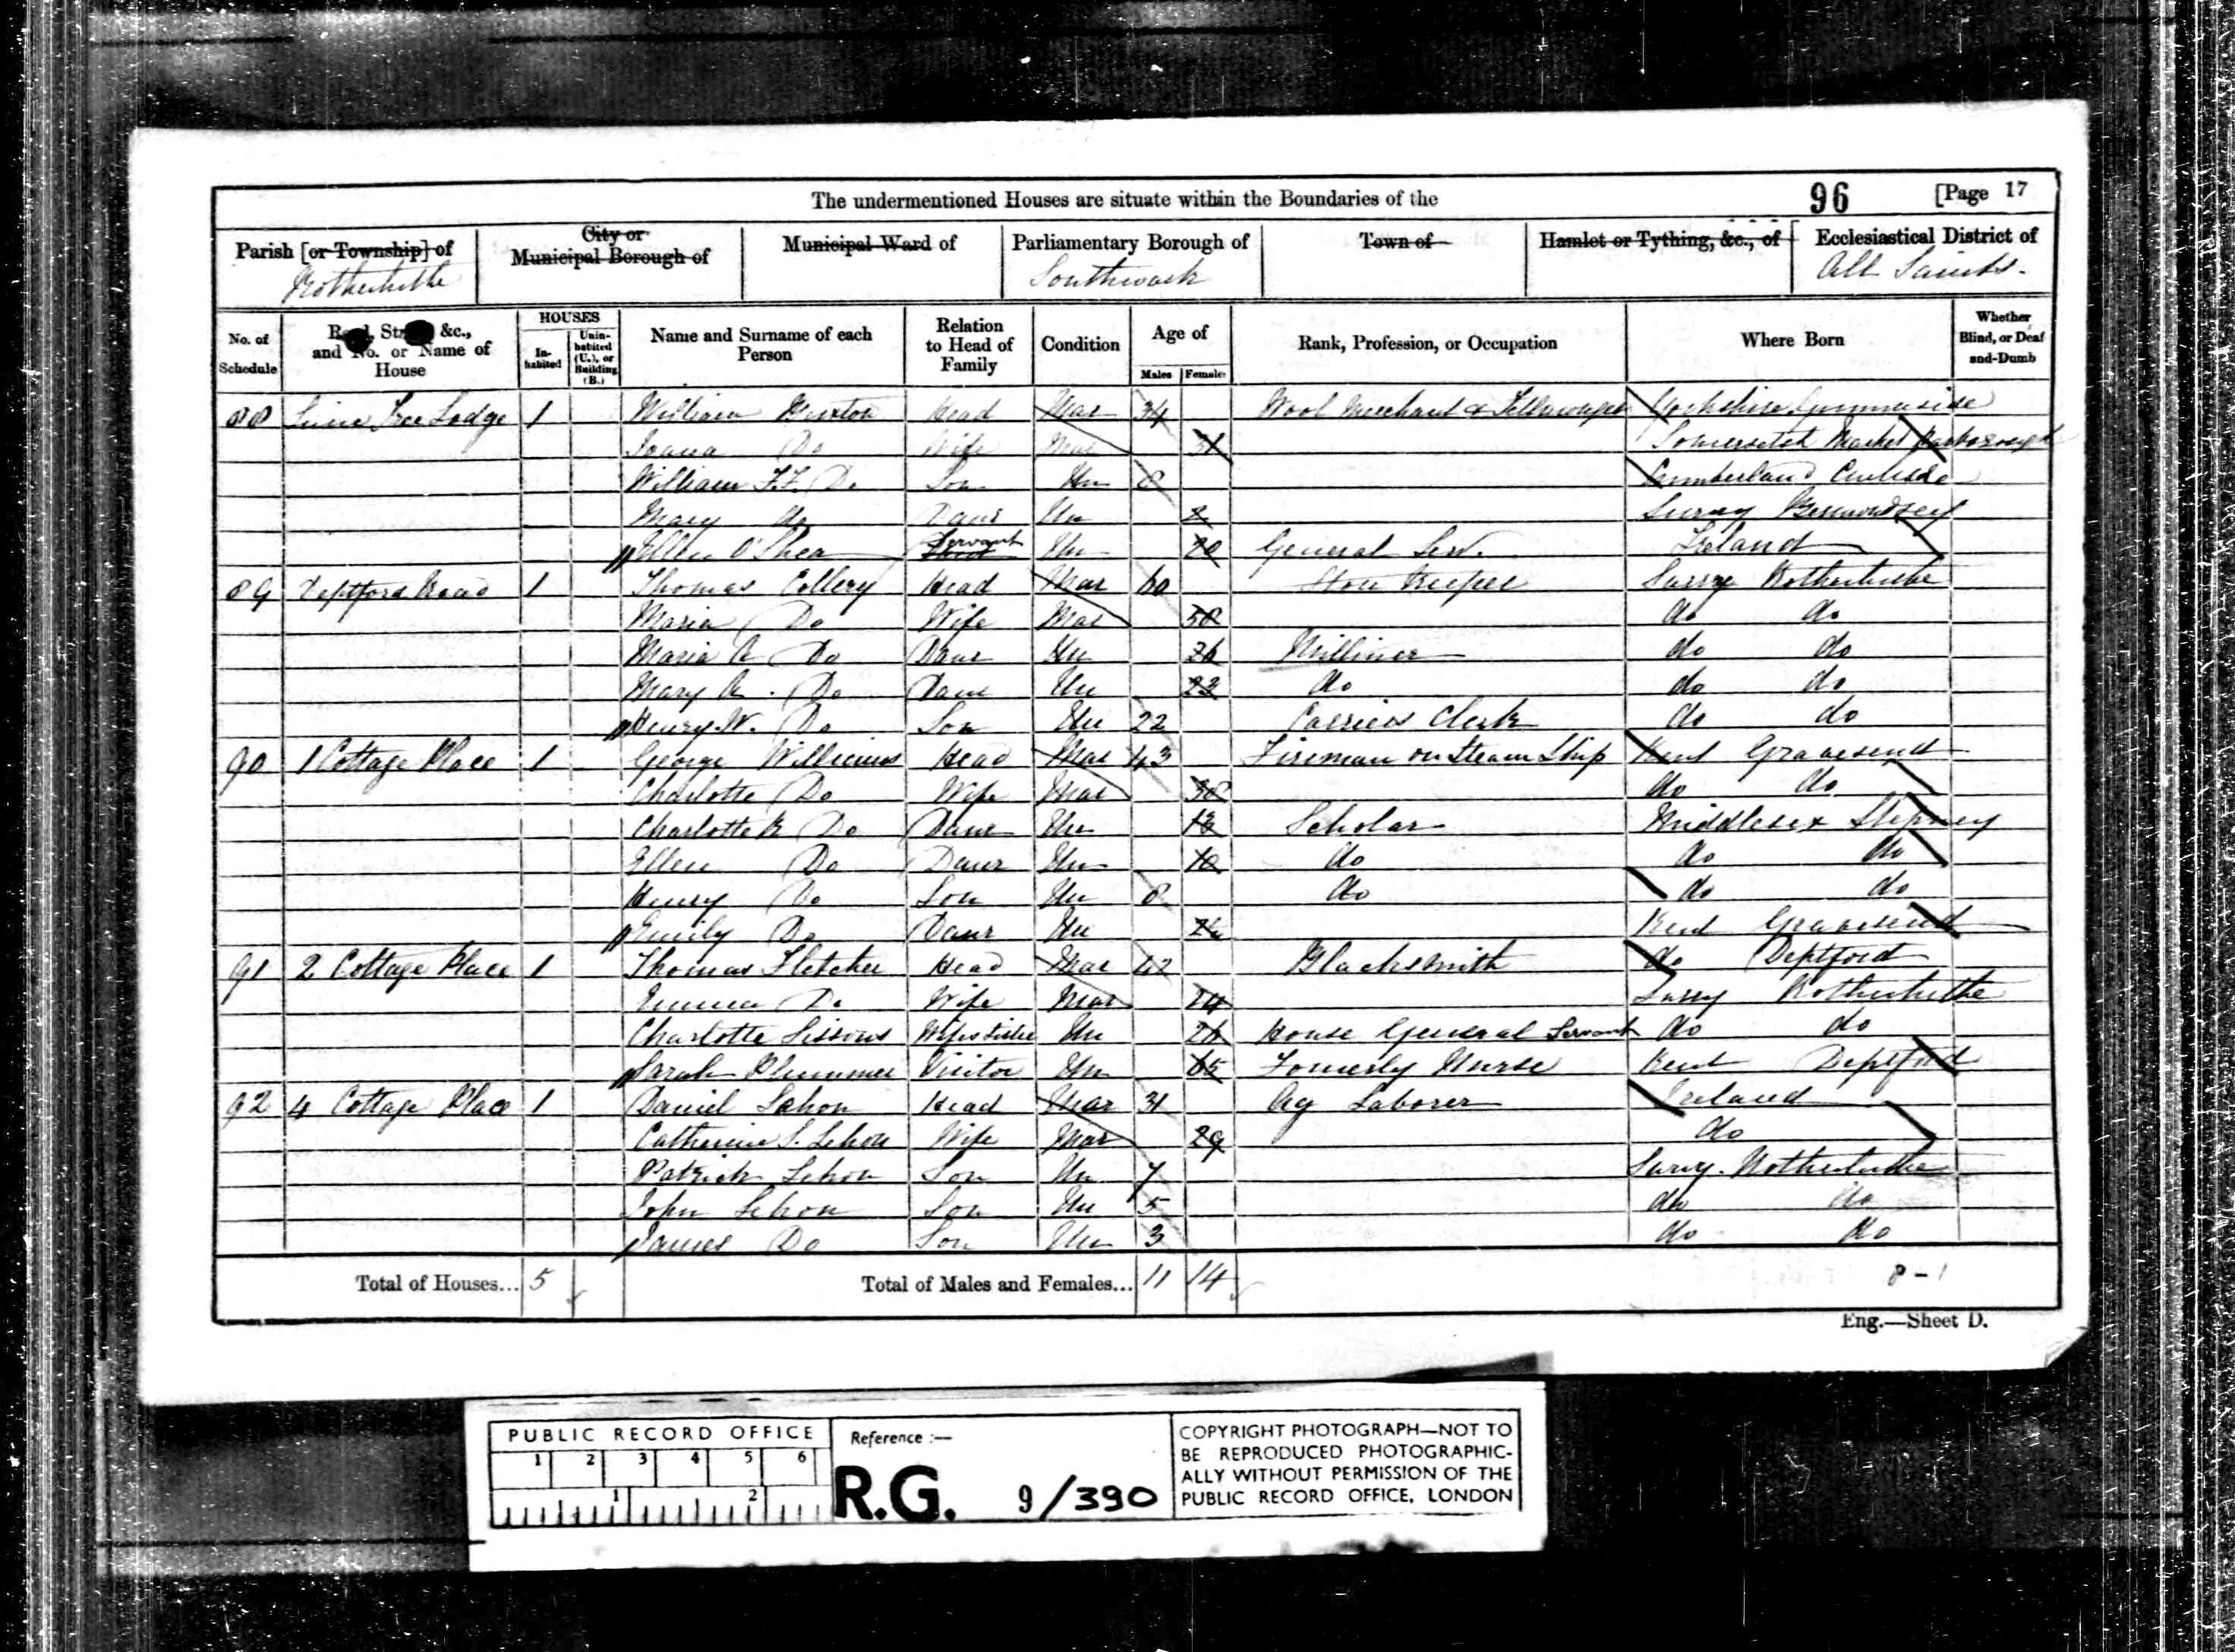 The undermentioned Houses are situate within the Boundaries of the 96 [Page 17
Parish [or Township] of City or Municipal Borough of Municipal Ward of Parliamentary Borough of Town of Hamlet or Tything, &c., of Ecclesiastical District of
Rotherhithe Southwark All Saints.
No. of Schedule Road, Street, &c., and No. or Name of House HOUSES Inhabited Uninhabited (U.), or Building (B.) Name and Surname of each Person Relation to Head of Family Condition Age of Males Females Rank, Profession, or Occupation Where Born Whether Blind, or Deaf-and-Dumb
88 Lime Tree Lodge 1 William Head Mar 34 Wool Merchant & Yorkshire
Do Wife Mar 31 Market Harborough
William F.F. Do Son Un 8 Cumberland Carlisle
Mary do Daur Un 2 Surrey Bermondsey
Ellen O'Shea Servant Un 20 General Serv. Ireland
89 Deptford Road 1 Thomas Collery Head Mar 60 Keeper Surrey Rotherhithe
Maria Do Wife Mar 58 do do
Maria A Do Daur Un 26 Milliner do do
Mary A. Do Daur Un 23 do do do
Henry W. Do Son Un 22 Carriers Clerk do do
90 1 Cottage Place 1 George Williams Head Mar 43 Fireman on Steam Ship Kent Gravesend
Charlotte Do Wife Mar 38 do do
Charlotte Do Daur Un Scholar Middlesex Stepney
Ellen Do Daur Un 10 do do do
Henry Do Son Un 8 do do do
Emily Do Daur Un Kent Gravesend
91 2 Cottage Place 1 Thomas Fletcher Head Mar 42 Blacksmith do Deptford
Emma Do Wife Mar 24 Surry Rotherhithe
Charlotte Sissons Wifes Sister Un 26 House General Servant do do
Sarah Plummer Visitor Un 65 Fomerly Nurse Kent Deptford
92 4 Cottage Place 1 Daniel Lehon Head Mar 31 Ag Laborer Ireland
Catherine S. Lehon Wife Mar 29 do
Patrick Lehon Son Un 7 Surry. Rotherhithe
John Lehon Son Un 5 do do
James Do Son Un 3 do do
Total of Houses... 5 Total of Males and Females... 11 14 8-1
Eng.—Sheet D.
PUBLIC RECORD OFFICE
1 2 3 4 5 6
1 2
Reference :—
R.G. 9/390
COPYRIGHT PHOTOGRAPH—NOT TO
BE REPRODUCED PHOTOGRAPHIC-
ALLY WITHOUT PERMISSION OF THE
PUBLIC RECORD OFFICE, LONDON